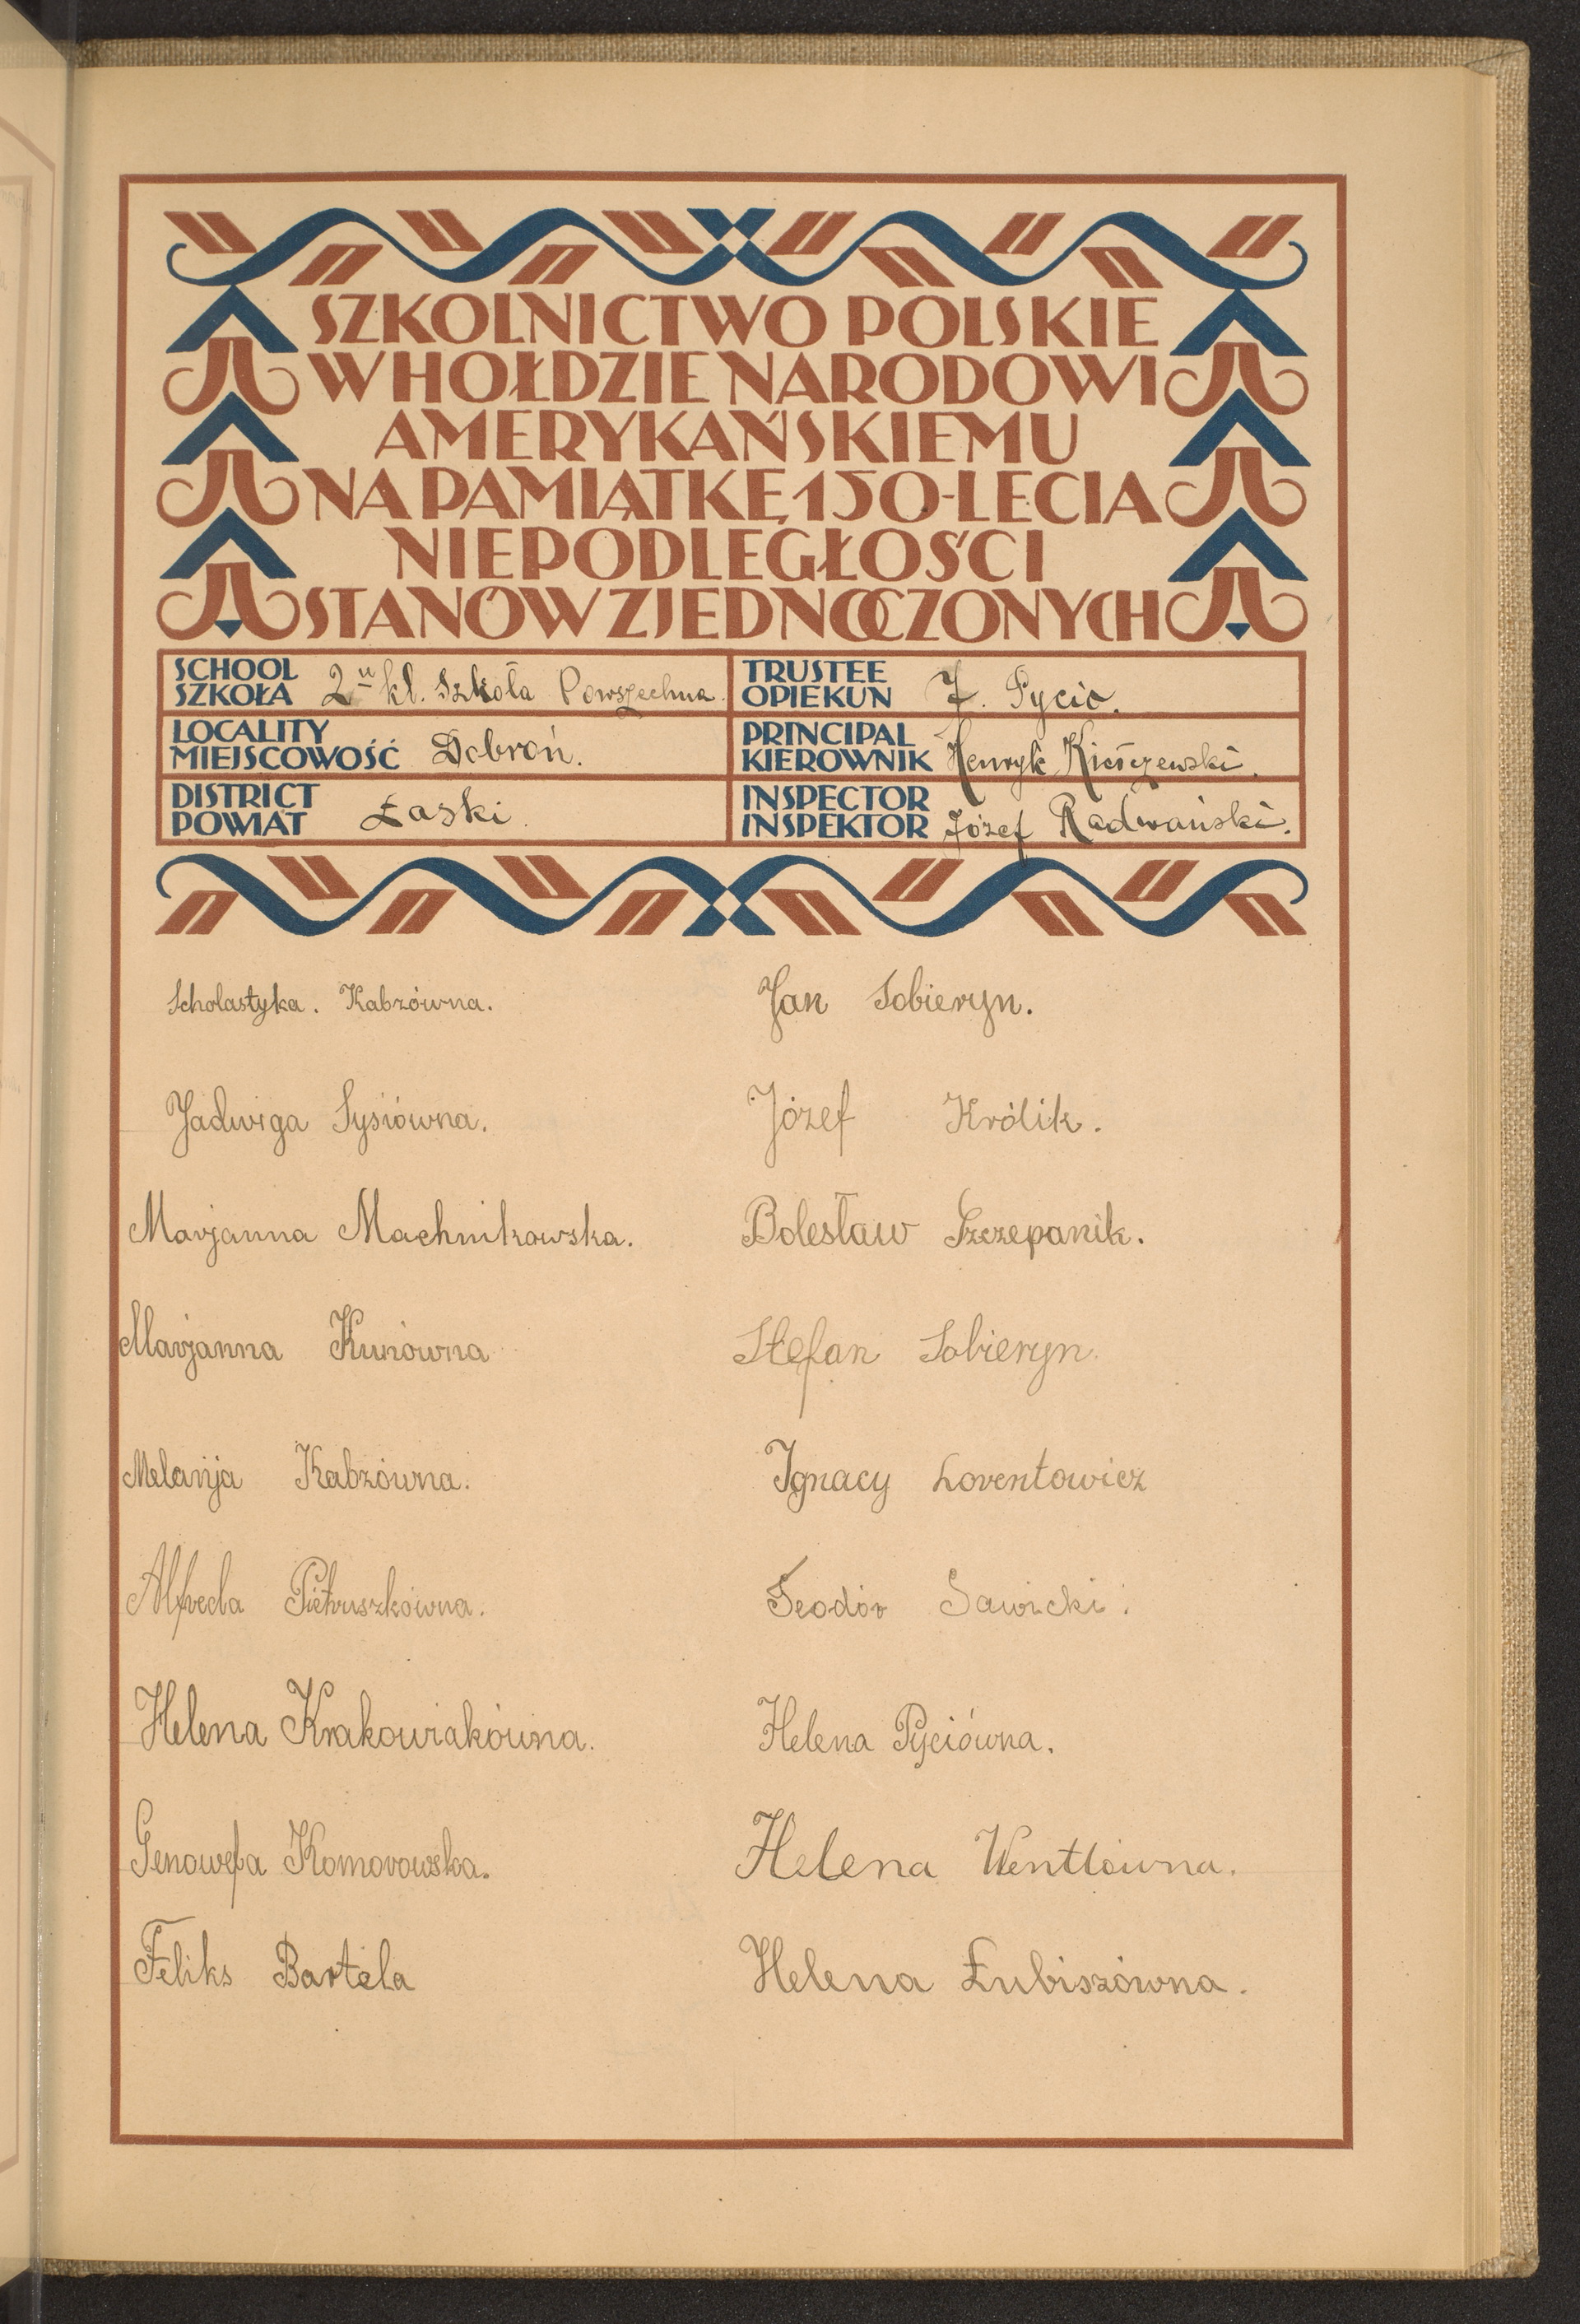 SZKOLNICTWO POLSKIE
W HOŁDZIE NARODOWI
AMERYKAŃSKIEMU
NA PAMIĄTKĘ 150-LECIA
NIEPODLEGŁOŚCI
STANÓW ZJEDNOCZONYCH
SCHOOL
SZKOŁA 2u kl. Szkoła Powszechna.
TRUSTEE
OPIEKUN J. Pycio.
LOCALITY
MIEJSCOWOŚĆ Dobroń.
PRINCIPAL
KIEROWNIK Henryk
DISTRICT
POWIAT Łaski
INSPECTOR
INSPEKTOR Józef Radwański.
Scholastyka. Kabzówna.
Jan Sobieryn.
Jadwiga Sysiówna.
Józef Królik.
Marjanna Machnikowska.
Bolesław Szczepanik.
Marjanna Kunówna
Stefan Sobieryn.
Melanja Kabzówna.
Ignacy Lorentowicz
Alfreda Pietruszkówna.
Teodór Sawicki.
Helena Krakowiakówna.
Helena Pyciówna.
Genowefa Komorowska.
Helena Wentlówna.
Feliks Bartela
Helena Łubiszówna.